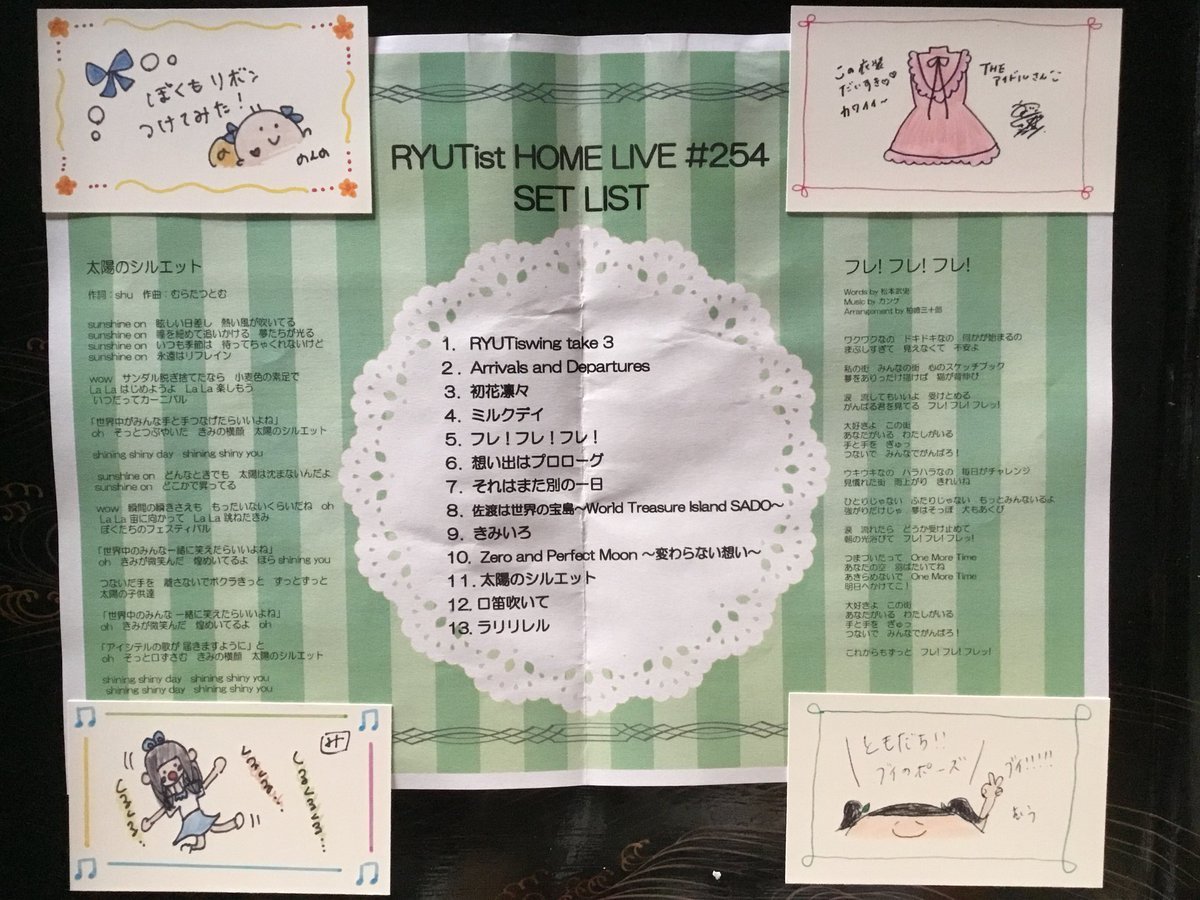 ぼくもリボン
つけてみた！
の
のんの
この衣装
だいすき♡♡
カワイイ〜
THE
アイドルさん
RYUTist HOME LIVE #254
SET LIST
太陽のシルエット
作詞：shu 作曲：むらたつとむ
sunshine on 眩しい日差し 熱い風が吹いてる
sunshine on 瞳を細めて追いかける 夢たちが光る
sunshine on いつも季節は 待ってちゃくれないけど
sunshine on 永遠はリフレイン
wow サンダル脱ぎ捨てたなら 小麦色の素足で
La La はじめようよ La La 楽しもう
いつだってカーニバル
「世界中がみんな手と手つなげたらいいよね」
oh そっとつぶやいた きみの横顔 太陽のシルエット
shining shiny day shining shiny you
sunshine on どんなときでも 太陽は沈まないんだよ
sunshine on どこかで昇ってる
wow 瞬間の瞬きさえも もったいないくらいだね oh
La La 宙に向かって La La 跳ねたきみ
ぼくたちのフェスティバル
「世界中のみんな一緒に笑えたらいいよね」
oh きみが微笑んだ 煌めいてるよ ほら shining you
つないだ手を 離さないでボクラきっと ずっとずっと
太陽の子供達
「世界中のみんな 一緒に笑えたらいいよね」
oh きみが微笑んだ 煌めいてるよ oh
「アイシテルの歌が 届きますように」と
oh そっと口ずさむ きみの横顔 太陽のシルエット
shining shiny day shining shiny you
shining shiny day shining shiny you
1. RYUTiswing take 3
2. Arrivals and Departures
3. 初花凛々
4. ミルクデイ
5. フレ！フレ！フレ！
6. 想い出はプロローグ
7. それはまた別の一日
8. 佐渡は世界の宝島〜World Treasure Island SADO〜
9. きみいろ
10. Zero and Perfect Moon 〜変わらない想い〜
11. 太陽のシルエット
12. 口笛吹いて
13. ラリリレル
フレ! フレ! フレ!
Words by 松本武史
Music by カンケ
Arrangement by 柏崎三十郎
ワクワクなの ドキドキなの 何かが始まるの
まぶしすぎて 見えなくて 不安よ
私の街 みんなの街 心のスケッチブック
夢をありったけ描けば 猫が背伸び
涙 流してもいいよ 受けとめる
がんばる君を見てる フレ! フレ! フレッ!
大好きよ この街
あなたがいる わたしがいる
手と手を ぎゅっ
つないで みんなでがんばろ！
ウキウキなの ハラハラなの 毎日がチャレンジ
見慣れた街 雨上がり きれいね
ひとりじゃない ふたりじゃない もっとみんないるよ
強がりだけじゃ 夢はそっぽ 犬もあくび
涙 流れたら どうか受け止めて
朝の光浴びて フレ! フレ! フレッ!
つまづいたって One More Time
あなたの空 羽ばたいてね
あきらめないで One More Time
明日へかけてこ！
大好きよ この街
あなたがいる わたしがいる
手と手を ぎゅっ
つないで みんなでがんばろ！
これからもずっと フレ! フレ! フレッ!
み
ともだち!!
ブイのポーズ
ブイ!!!!!
むう